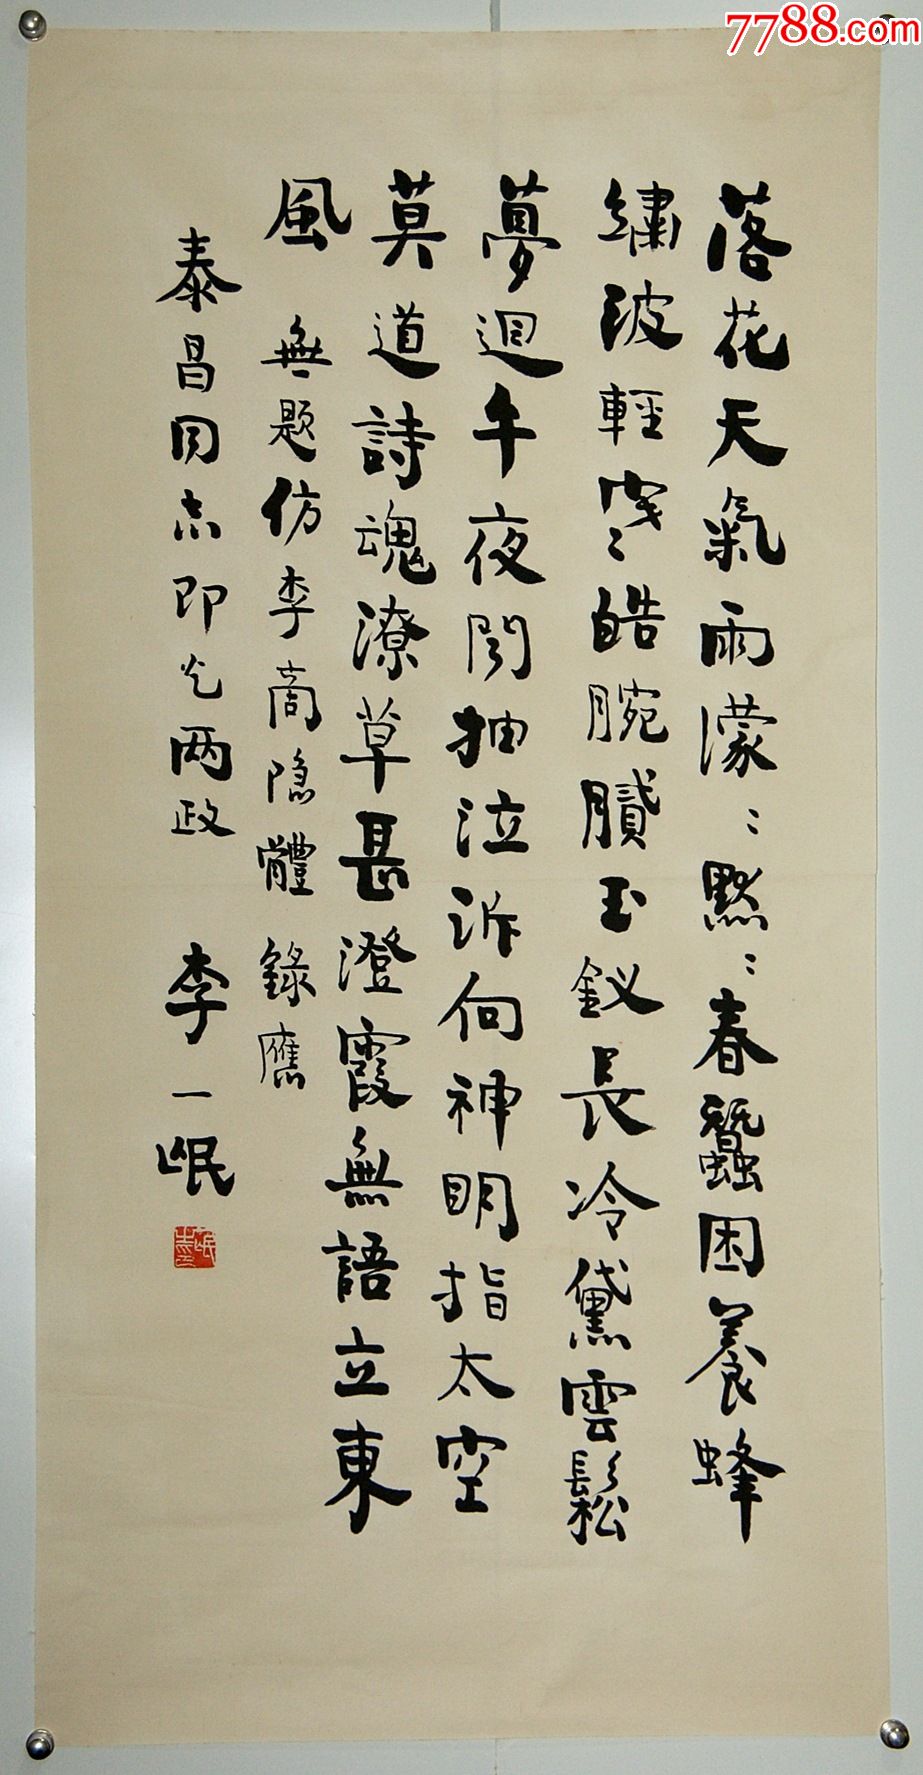 落花天氣雨濛〻默〻春蠶困養蜂
繡波輕穿皓腕賸玉釵長冷黛雲鬆
夢迴午夜閒抽泣訴向神明指太空
莫道詩魂潦草甚澄霞無語立東
風 無題仿李商隐體 錄應
泰昌同志即乞两政 李一氓
7788.com